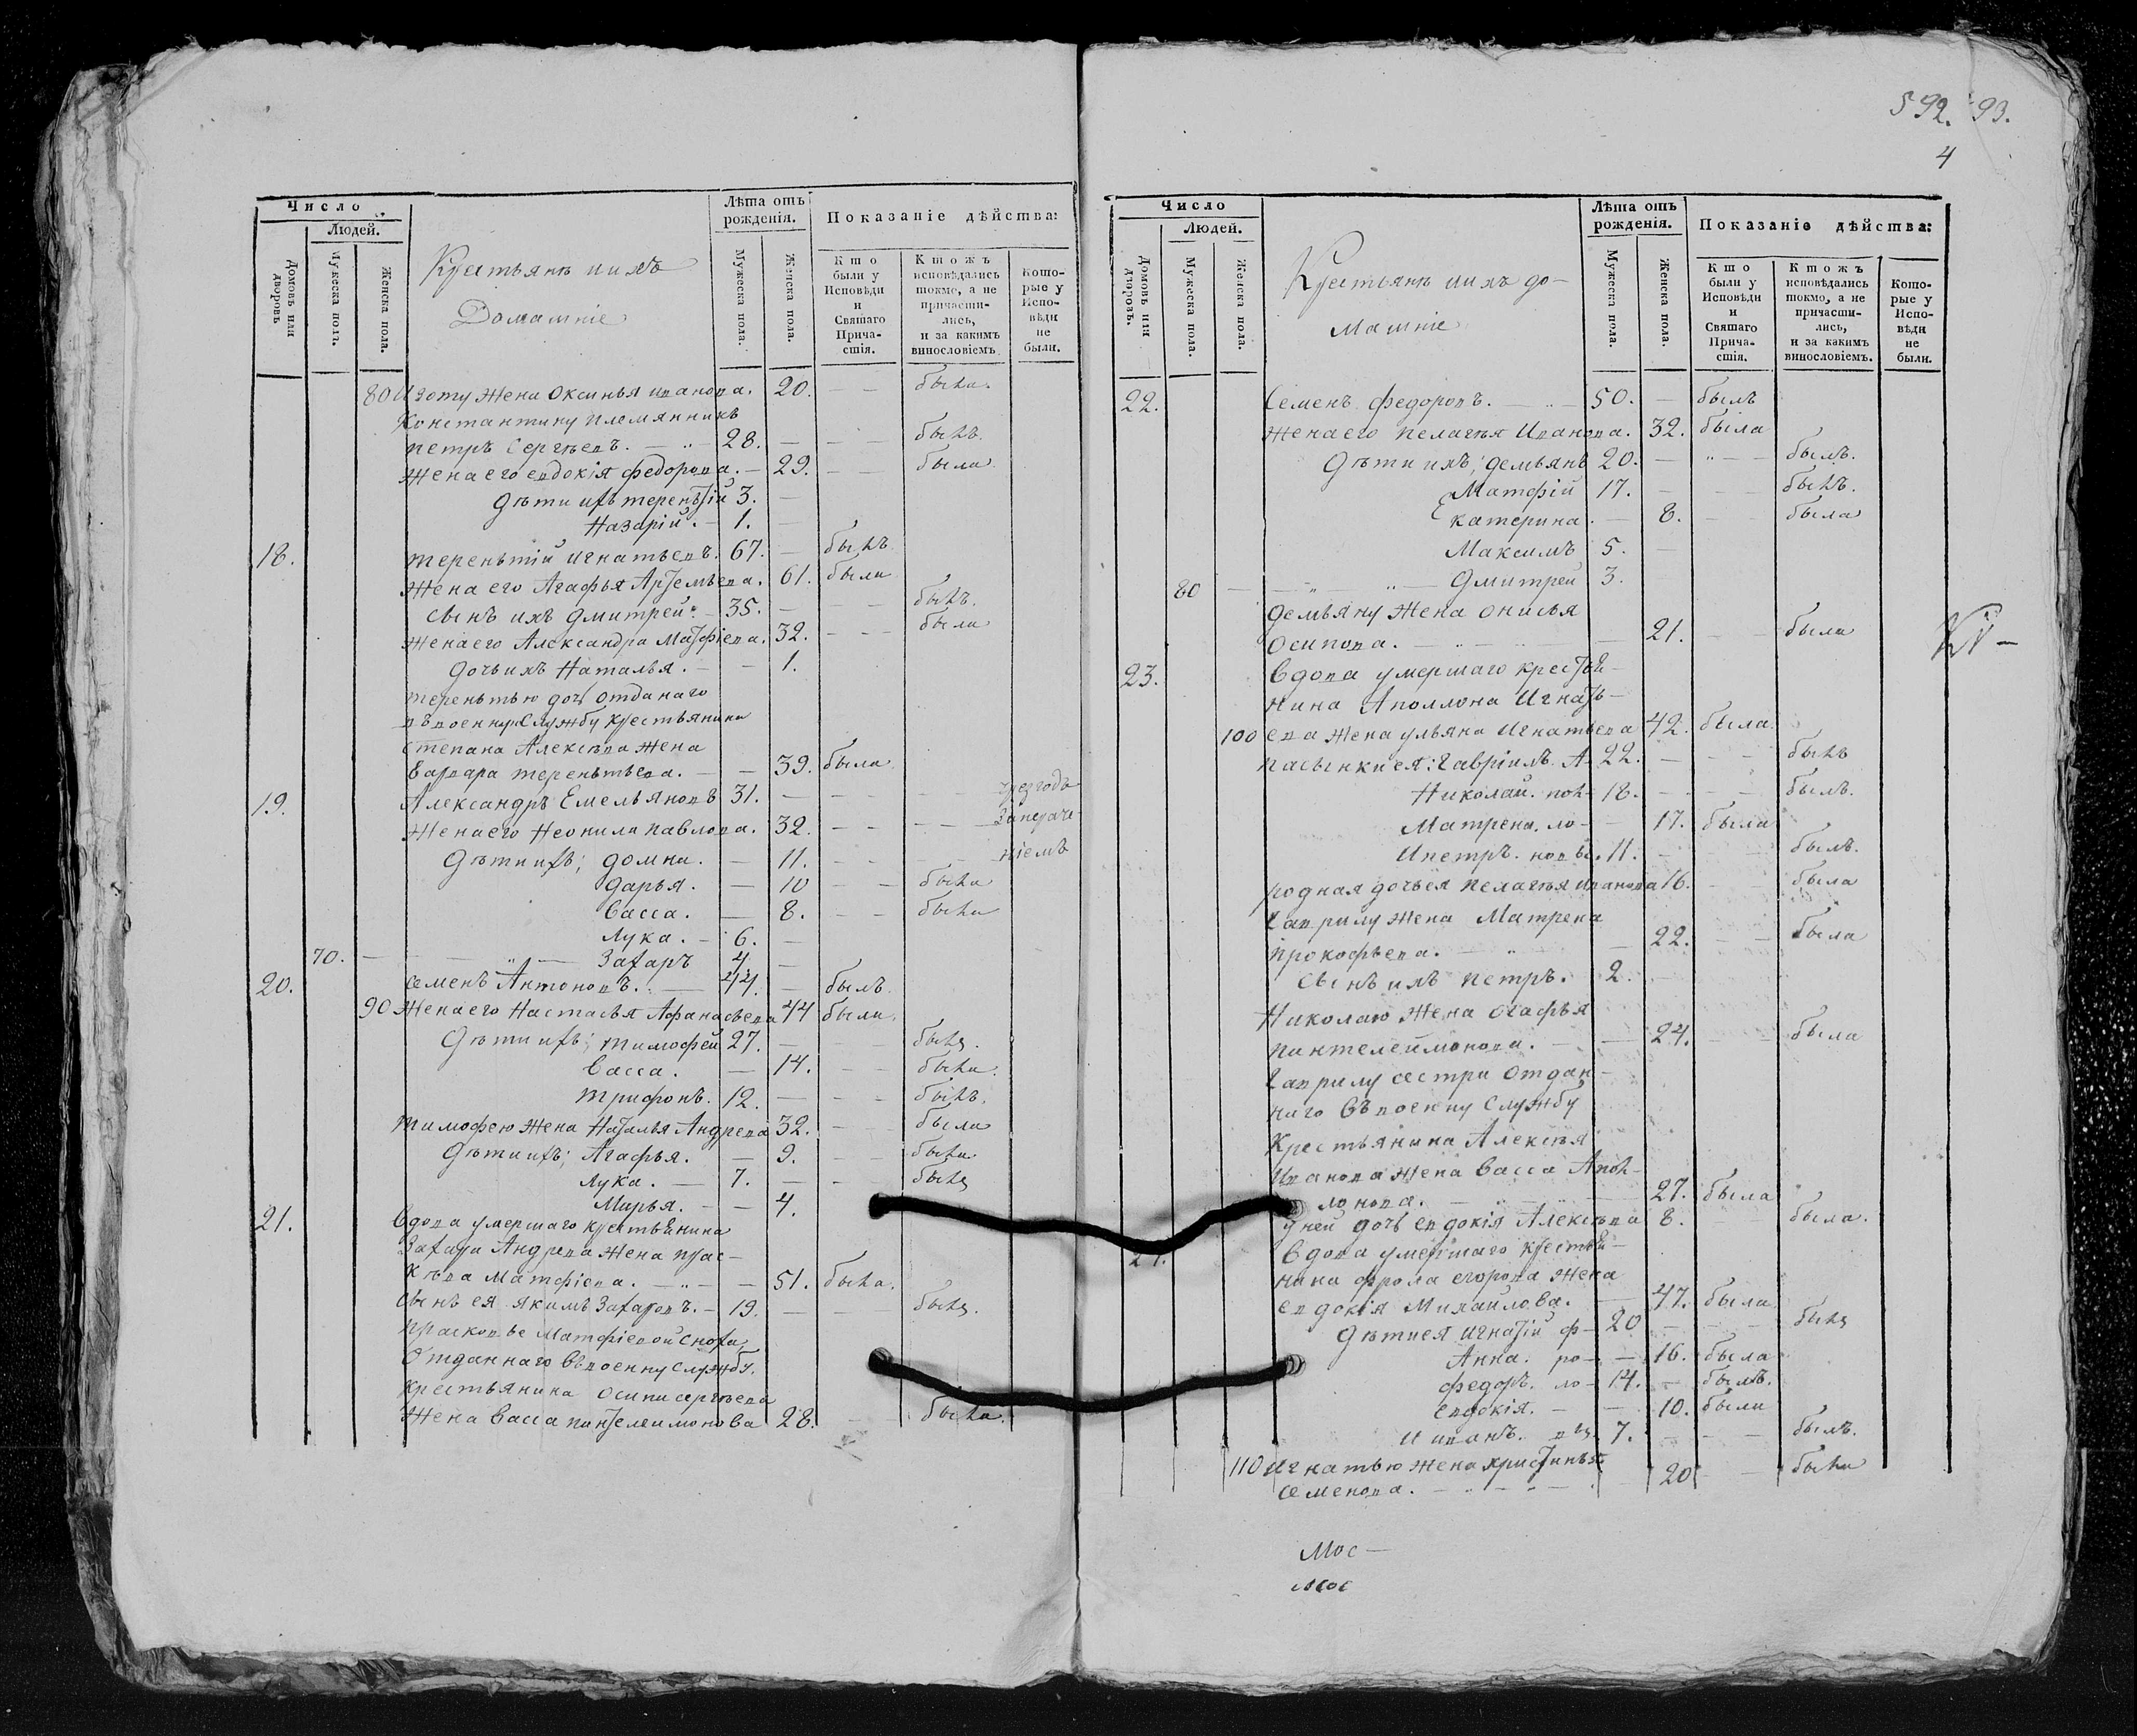 592. 93.
4
Число
Людей.
Домовъ или дворовъ
Мужеска пола.
Женска пола.
Крестьянъ и ихъ
Домашніе
Лѣта отъ рожденія.
Мужеска пола.
Женска пола.
Показаніе дѣйства:
Кто были у Исповѣди и Святаго Причастія.
Ктожъ исповѣдались токмо, а не причастились, и за какимъ винословіемъ.
Которые у Исповѣди не были.
80 жена Оксинья Иванова. 20. — — была.
Константину племянникъ
Петръ Сергѣевъ. — 28. — — — былъ.
Жена его Евдокія Федорова. — 29. — — была.
Дѣти ихъ Терентій 3. —
Назарій. — 1. —
18. Терентій Игнатьевъ. 67. — былъ
Жена его Агафья Артемьева. 61. была
Сынъ ихъ Дмитрей — 35. — — — былъ.
Жена его Александра Матфіева. 32. — — была
Дочь ихъ Наталья. — — 1.
Терентью дочь отданаго
въ военную службу крестьянина
Степана Алексѣева жена
Варвара Терентьева. — — 39. была
19. Александръ Емельяновъ 31. — — — — чрез годъ
Жена его Неонила Павлова. 32. — — — — за нераче-
Дѣти ихъ; Домна. — 11. — — ніемъ
Дарья. — 10 — — была
Васса. — 8. — — была
Лука. — 6. —
70. — — „ — Захаръ 4. —
20. Семенъ Антоновъ. — 44. — былъ.
90 Жена его Настасья Афанасьева 44 была.
Дѣти ихъ; Тимофей 27. — — — былъ.
Васса. — 14. — — была.
Трифонъ. 12. — — — былъ.
Тимофею жена Наталья Андреева 32. — — была
Дѣти ихъ; Агафья. — 9. — — была
Лука. — 7. — — — былъ
Марья. — — 4.
21. Вдова умершаго крестьянина
Захара Андреева жена Прас-
ковья Матфіева. — „ — — 51. была.
Сынъ ея Якимъ Захаровъ. — 19. — — — былъ.
Прасковье Матфіевой сноха,
Отданнаго въ военну службу.
Крестьянина Осипа Сергѣева
Жена Васса Пантелеимонова 28. — была.
Число
Людей.
Домовъ или дворовъ.
Мужеска пола.
Женска пола.
Крестьянъ и ихъ до-
машніе
Лѣта отъ рожденія.
Мужеска пола.
Женска пола.
Показаніе дѣйства:
Кто были у Исповѣди и Святаго Причастія.
Ктожъ исповѣдались токмо, а не причастились, и за какимъ винословіемъ.
Которые у Исповѣди не были.
22. Семенъ Федоровъ. — 50. — былъ
Жена его Пелагѣя Иванова. 32. была
Дѣти ихъ; Демьянъ 20. — „ — былъ.
Матфій 17. — — — былъ.
Екатерина. — 8. — — была
Максимъ 5. —
80 — — „ — Дмитрей 3.
Демьяну жена Онисья
Осипова. — „ — — 21. — — была
23. Вдова умершаго крестья-
нина Аполлона Игнать-
100 ева жена Ульяна Игнатьева 42. была
Пасынки ея: Гавріилъ. А- 22. — — — былъ
Николай. пол- 18. — — — былъ.
Матрена. ло- — 17. была
И Петръ. новы. 11. — — — былъ.
Родная дочь ея Пелагѣя Иванова 16. — — была
Гаврилу жена Матрена
Прокофьева. — „ — — 22. — — была
Сынъ ихъ Петръ. 2. —
Николаю жена Огафья
Пантелеимонова. — — 24. — была
Гаврилу сестра отдан-
наго въ военну службу
Крестьянина Алексѣя
Иванова жена Васса Апол-
лонова. — — 27. была
У ней дочь Евдокія Алексѣева 8. — — была.
Вдова умершаго крестья-
нина Фрола Егорова жена
Евдокія Михаилова. — 47. была
Дѣти ея Игнатій ф- 20 — — — былъ
Анна. ро- — 16. была
Федоръ. ло- 14. — былъ.
Евдокія. — — 10. была
И Иванъ. вы. 7. — — — былъ.
110 Игнатью жена Христинья
Семенова. — „ — — 20 — — была
Мос-
мос